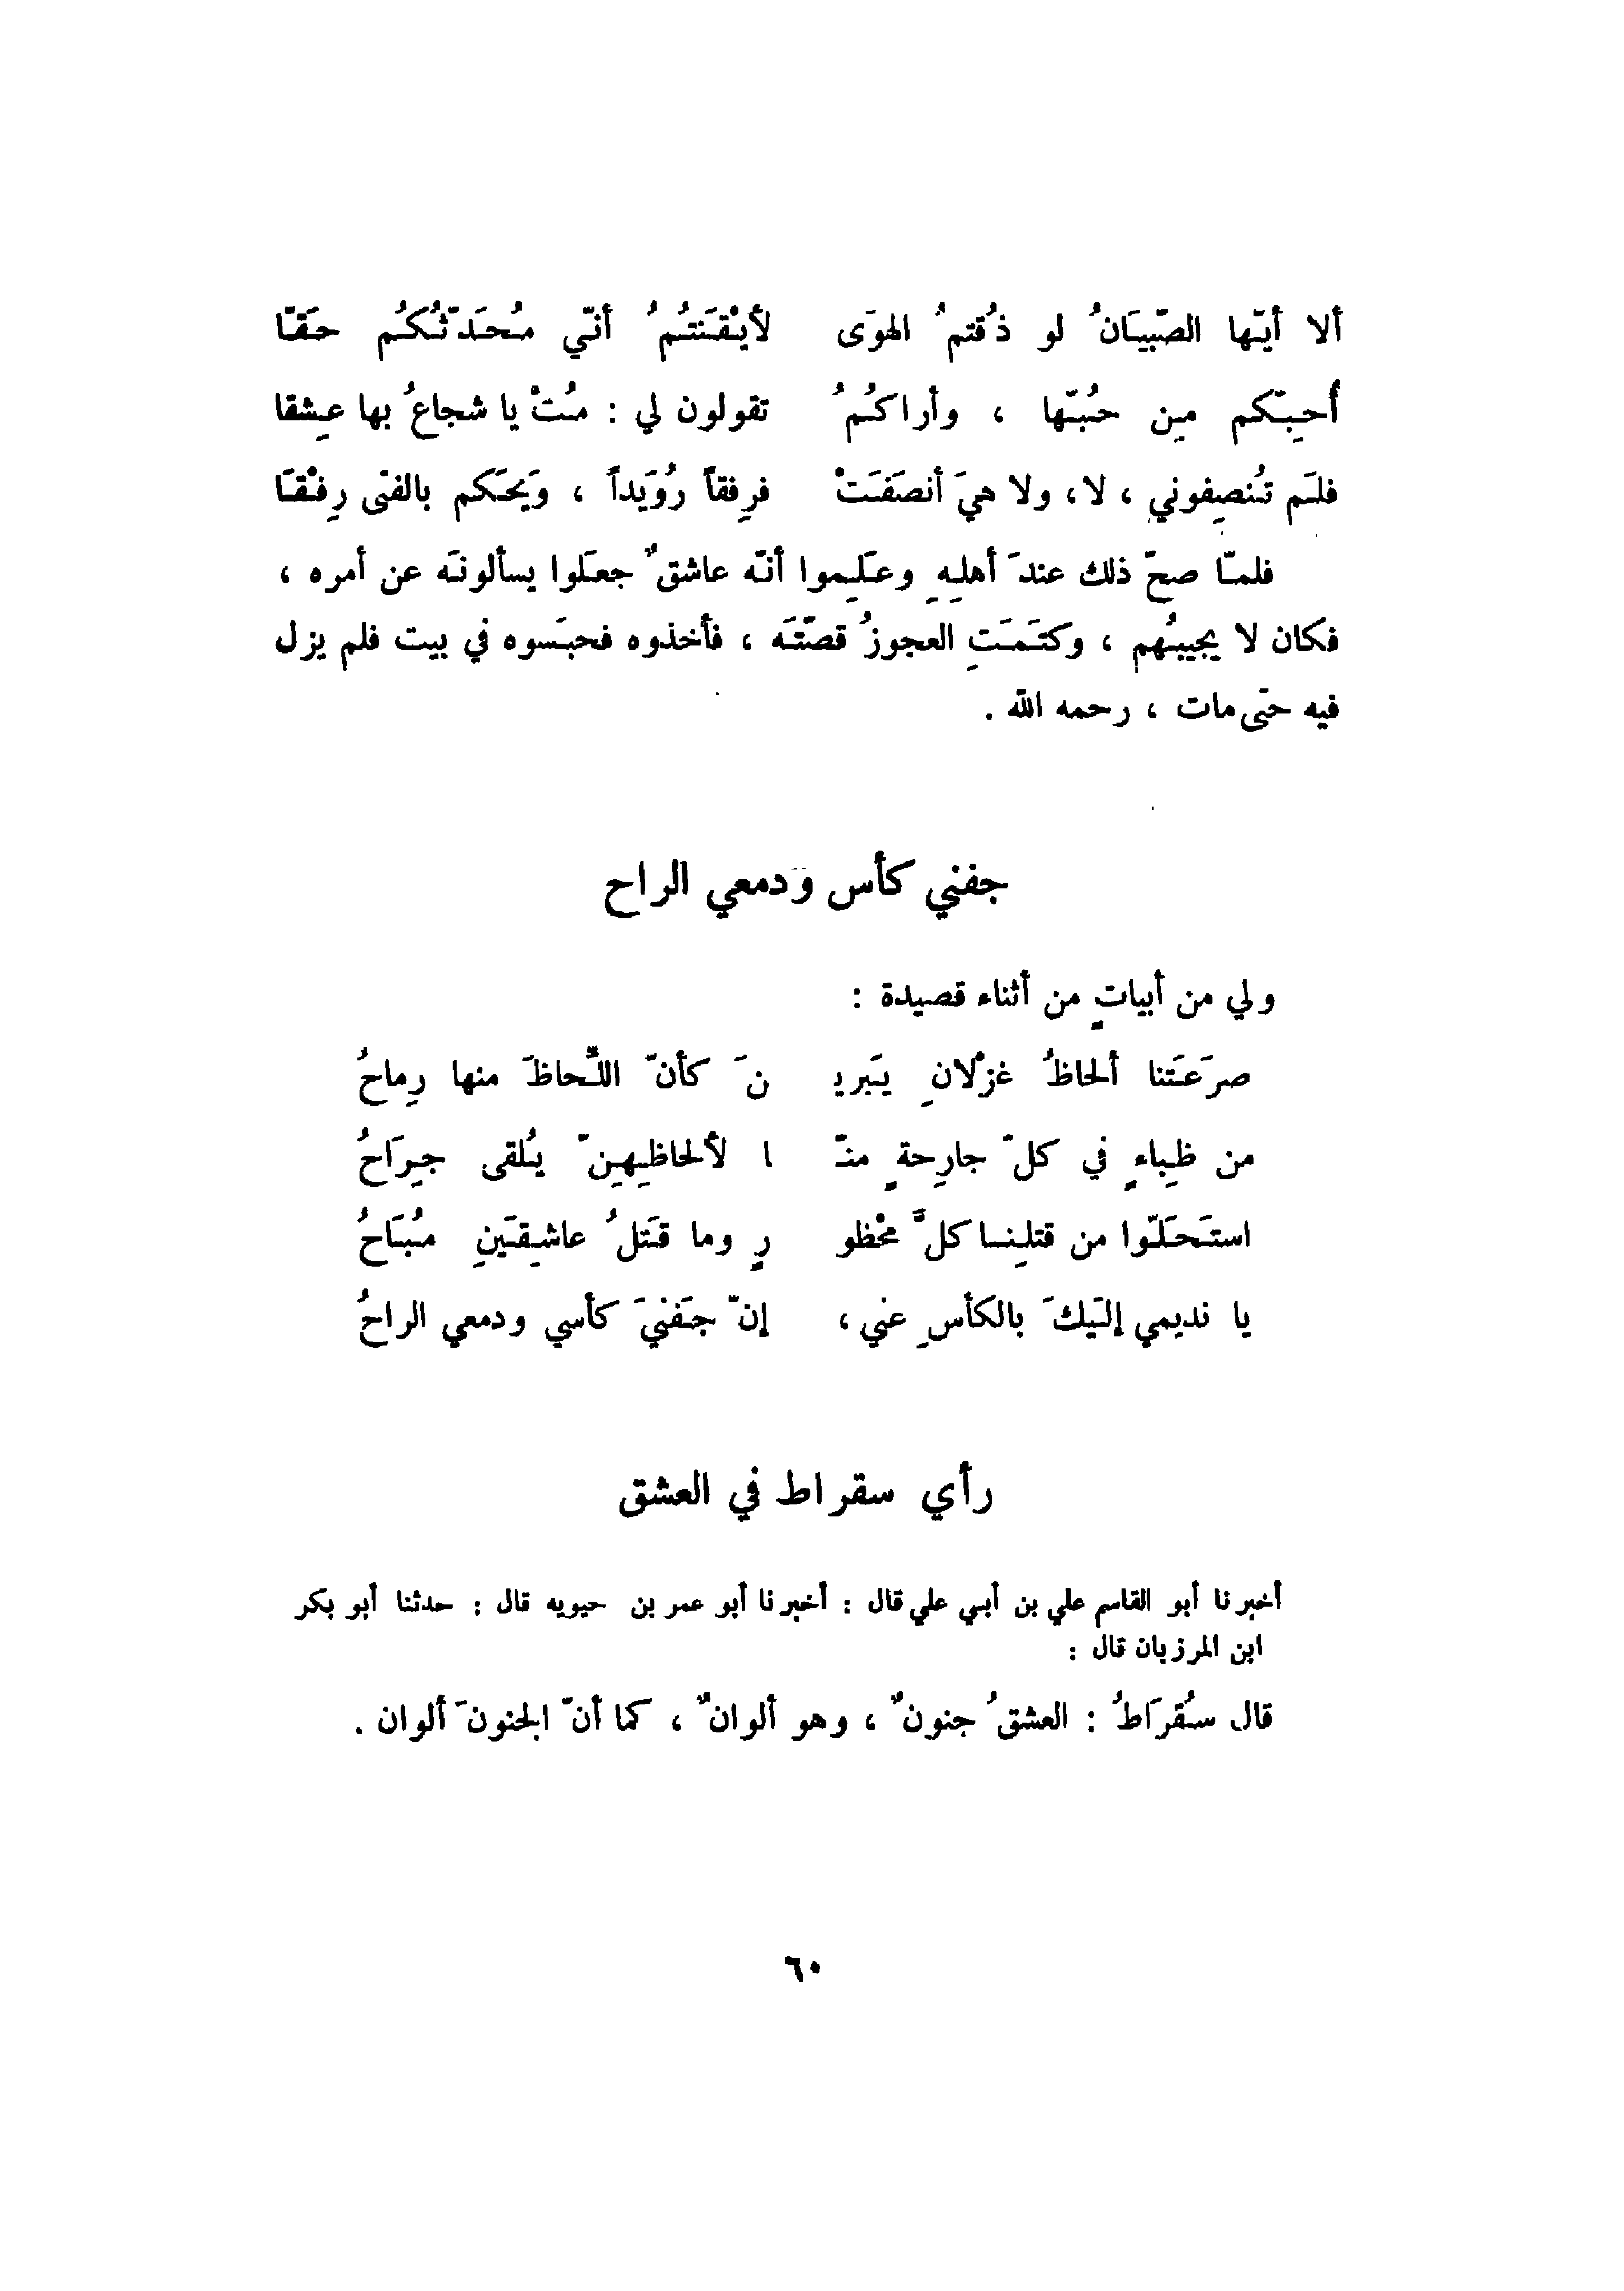 ألا أيّها الصّبيَانُ لو ذُقتمُ الهوَى لأيْقَنتُمُ أنّي مُحَدّثُكُم حَقّا
أُحِبّكم مِن حُبّها ، وأراكُمُ تقولون لي : مُتْ يا شجاعُ بها عِشقا
فلَم تُنصِفوني ، لا، ولا هيَ أنصَفَتْ فرِفقاً رُوَيداً ، وَيحَكم بالفتى رِفْقَا
فلمّا صحّ ذلك عندَ أهلِهِ وعَلِموا أنّه عاشقٌ جعَلوا يسألونَه عن أمره ،
فكان لا يجيبُهم ، وكتَمَتِ العجوزُ قصّتَه ، فأخذوه فحبَسوه في بيت فلم يزل
فيه حتى مات ، رحمه الله .
جفني كأس وَدمعي الراح
ولي من أبياتٍ من أثناء قصيدة :
صرَعَتنا ألحاظُ غزْلانِ يَبري نَ كأنّ اللّحاظَ منها رِماحُ
من ظِباءٍ في كلّ جارِحةٍ منّ ا لألحاظِهِنّ يُلقى جِرَاحُ
استَحَلّوا من قتلِنا كلَّ محْظو رٍ وما قَتلُ عاشِقَينِ مُبَاحُ
يا نديمي إلَيكَ بالكأسِ عني ، إنّ جَفنيَ كأسي ودمعي الراحُ
رأي سقراط في العشق
أخبرنا أبو القاسم علي بن أبي علي قال : أخبرنا أبو عمر بن حيويه قال : حدثنا أبو بكر
ابن المرزبان قال :
قال سُقرَاطُ : العشقُ جنونٌ ، وهو ألوانٌ ، كما أنّ الجنونَ ألوان .
٦٠